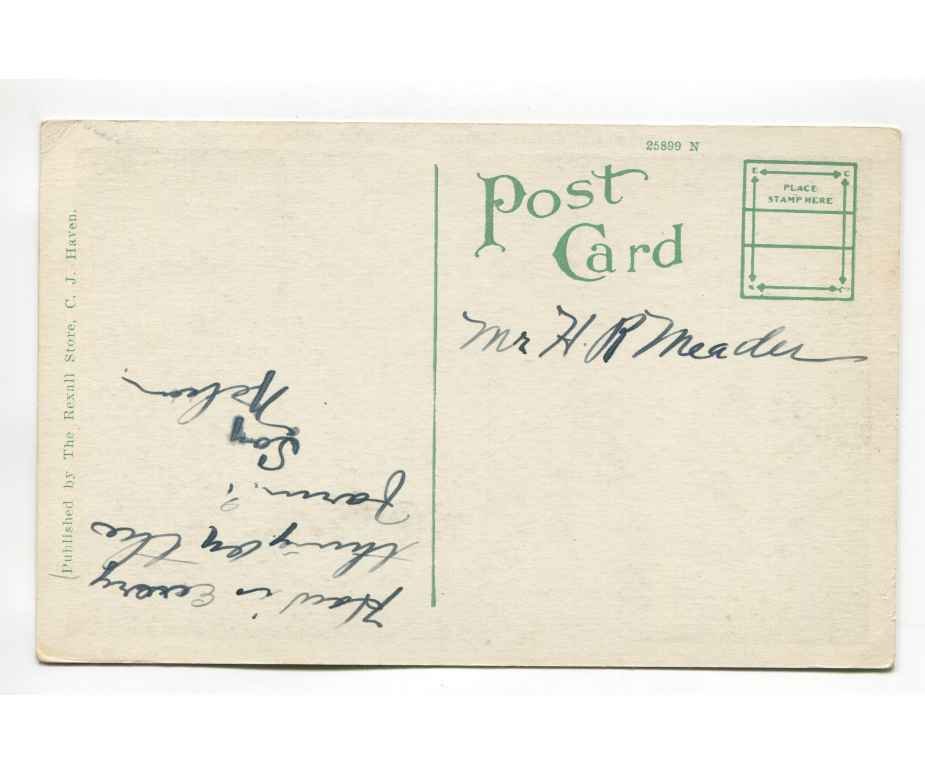 25899 N
POST CARD
PLACE
STAMP HERE
Mr H. R Meader
(Published by The Rexall Store, C. J. Haven.
How is Every
thing the
Farm?
Nelson.